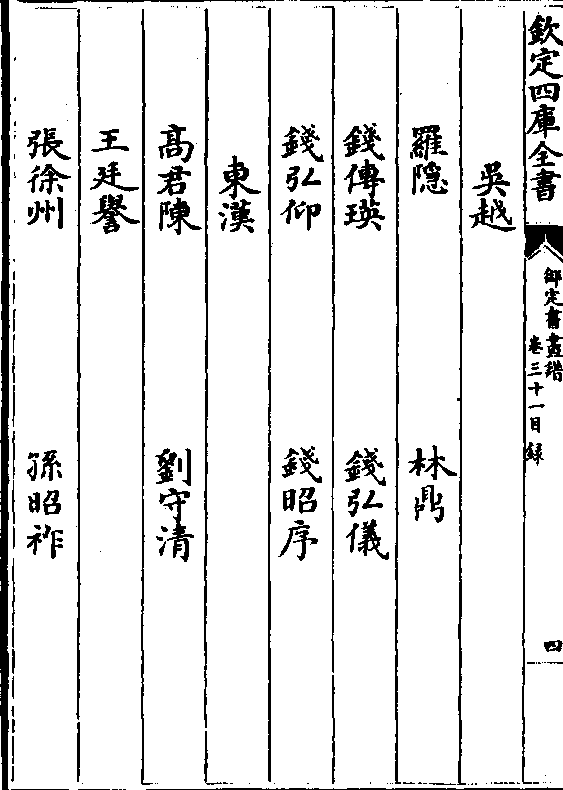 欽定四庫全書
御定書畫譜
卷三十一目録
四
吳越
羅隱 林鼎
錢傳瑛 錢弘儀
錢弘仰 錢昭序
東漢
高君陳 劉守清
王廷譽
張徐州 孫昭祚